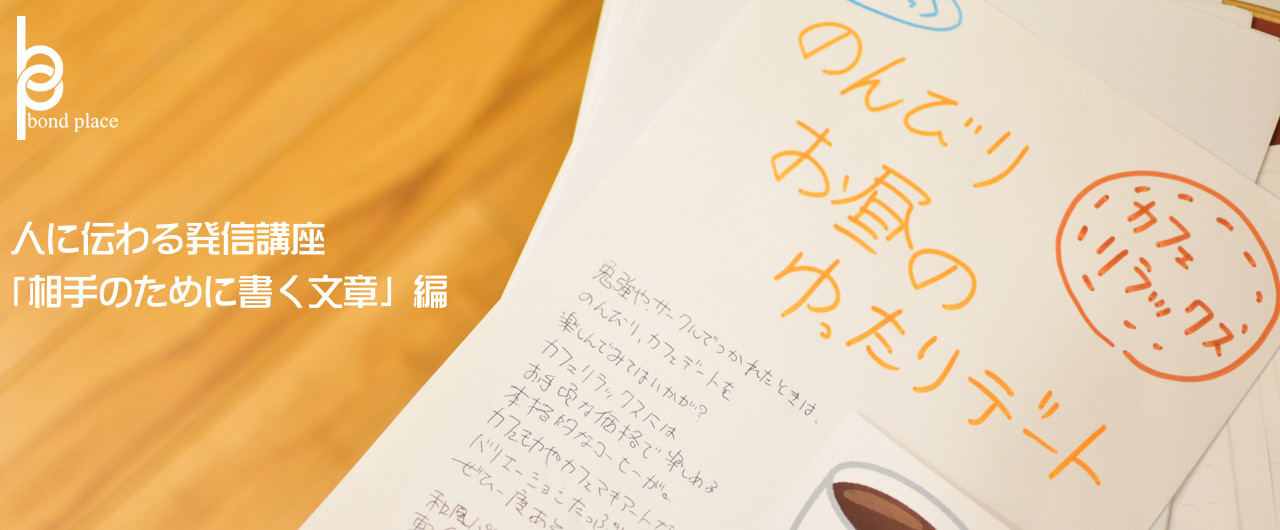 bond place
人に伝わる発信講座
「相手のために書く文章」編
のんびり
お昼の
ゆったりデート
カフェ
リラックス
勉強や、サークルでつかれたときは、
のんびり、カフェデートを
楽しんでみてはいかが?
カフェリラックスには
お手頃な価格で楽しめる
本格的なコーヒーが。
カフェモカやカフェマキアートなど
バリエーションたっぷり
ぜひ一度あそ
和風